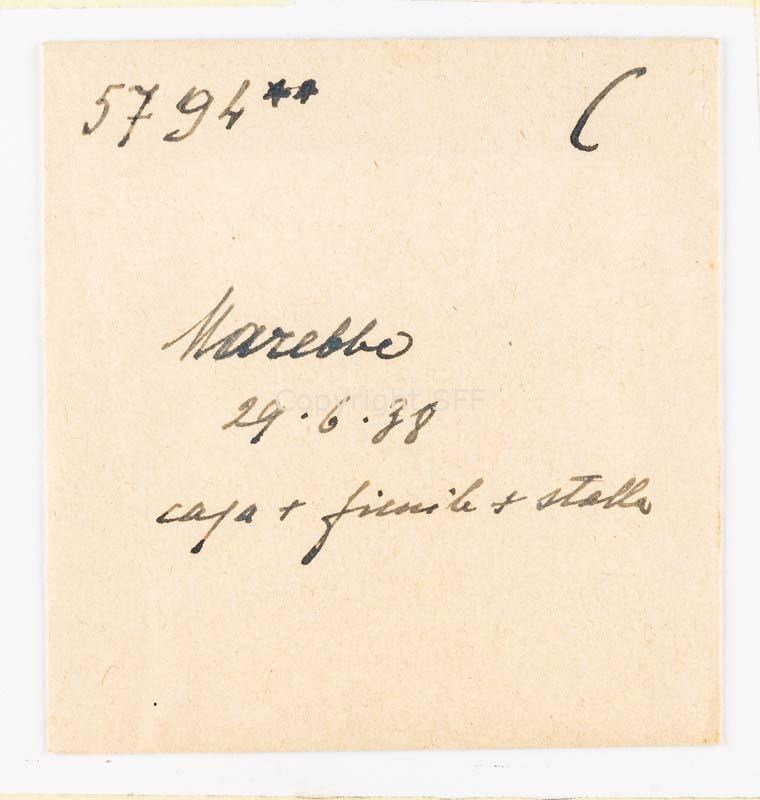 5794** C
Marebbe
Copyright SFF
29.6.38
casa + fienile + stalla